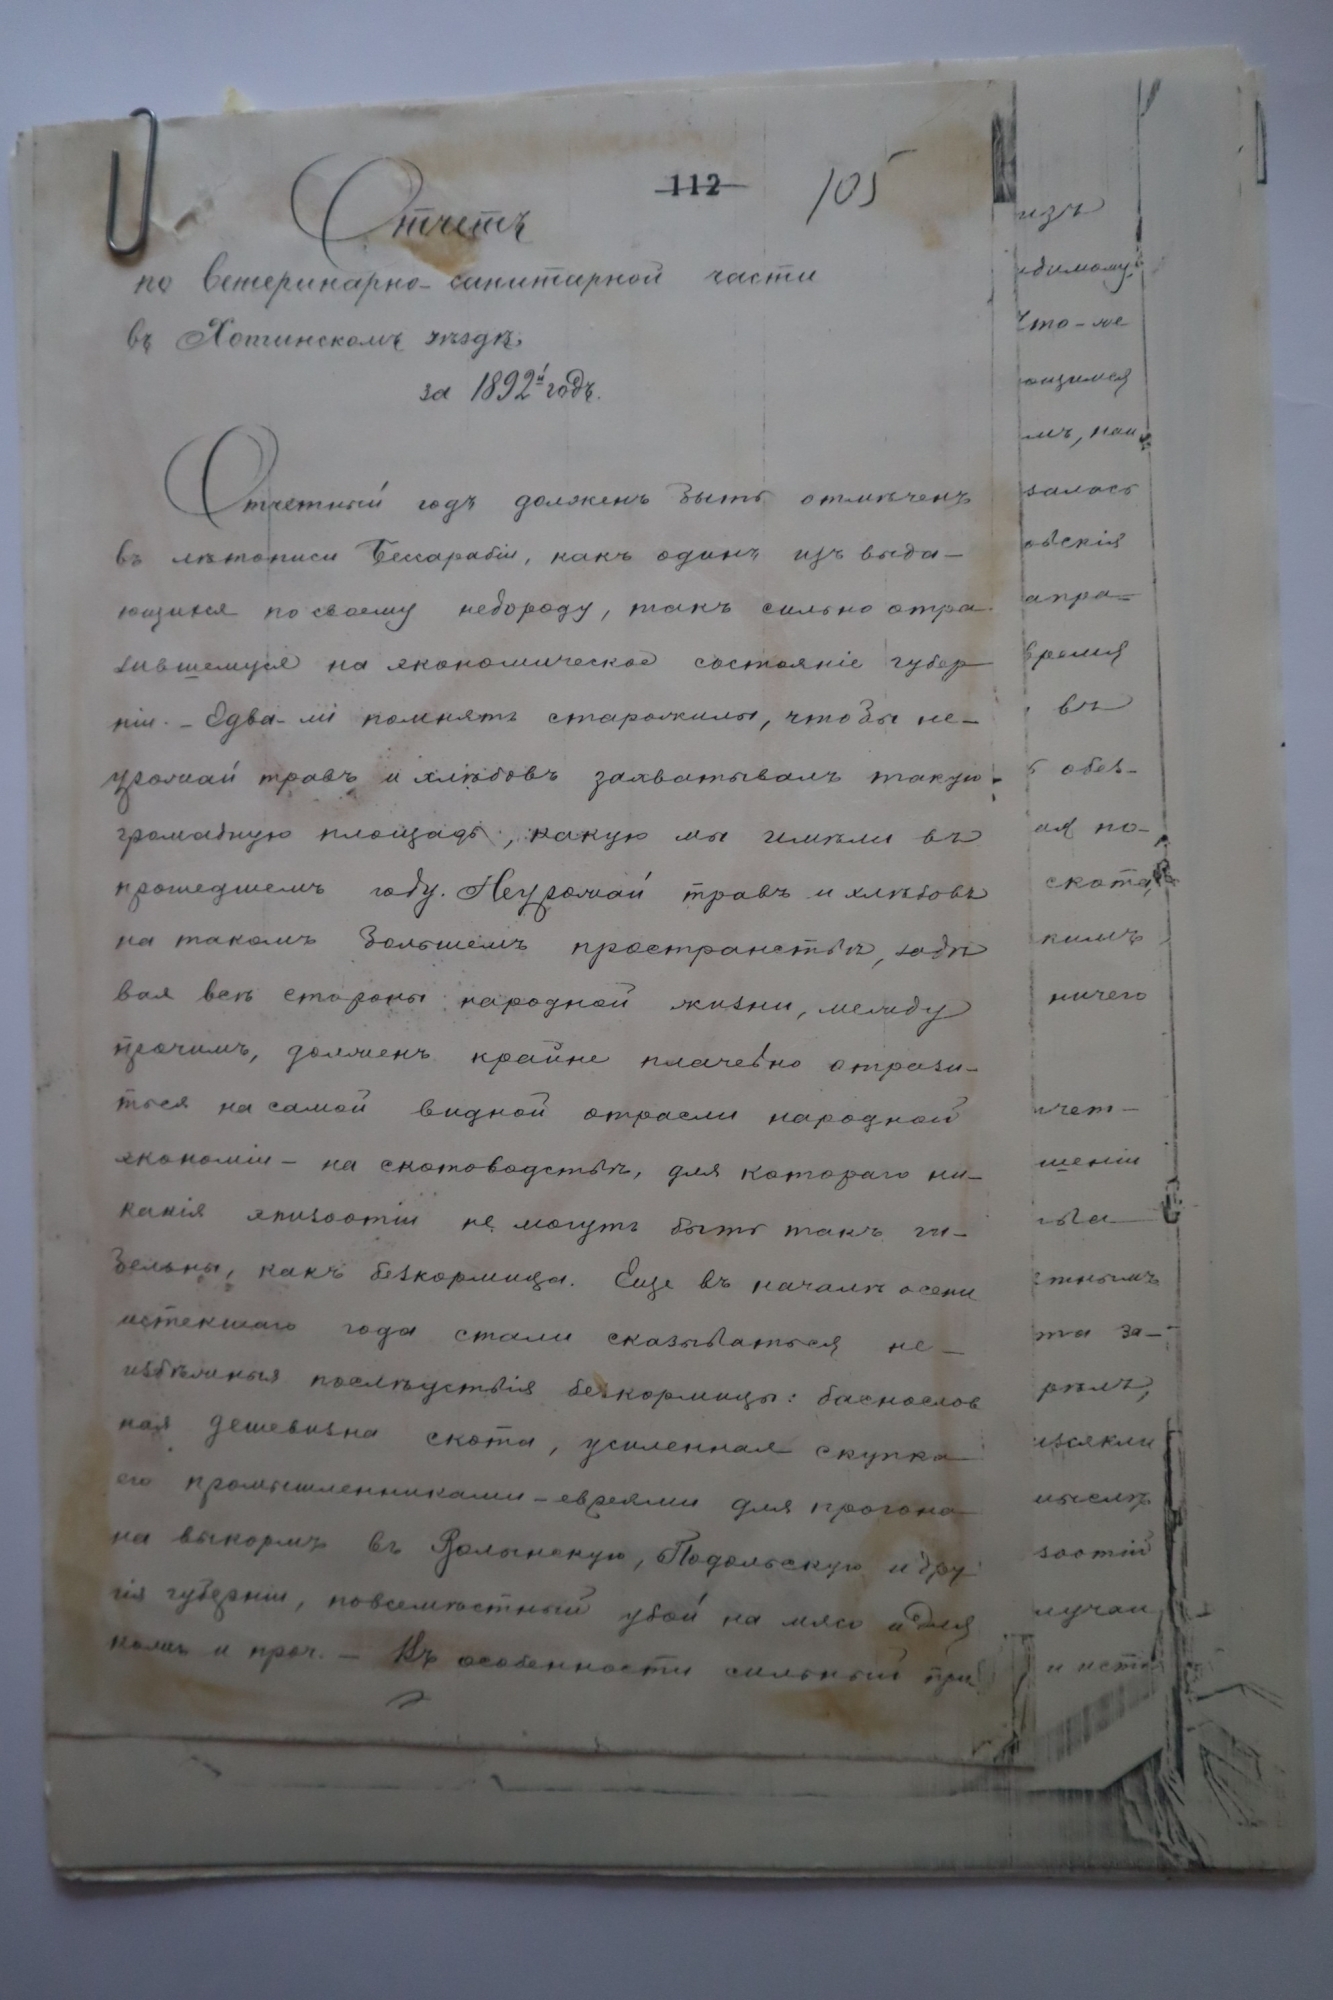 112 105
Отчетъ
по Ветеринарно-санитарной части
въ Хотинскомъ уѣздѣ
за 1892й годъ.
Отчетный годъ долженъ быть отмѣченъ
въ лѣтописи Бессарабіи, какъ одинъ изъ выда-
ющихся по своему недороду, такъ сильно отра-
зившемуся на экономическое состояніе губер
ніи. - Едва-ли помнятъ старожилы, чтобы не-
урожай травъ и хлѣбовъ захватывалъ такую
громадную площадь, какую мы имѣли въ
прошедшемъ году. Неурожай травъ и хлѣбовъ
на такомъ большемъ пространствѣ, задѣ
вая всѣ стороны народной жизни, между
прочимъ, долженъ крайне плачевно отрази-
ться на самой видной отрасли народной
экономіи - на скотоводствѣ, для котораго ни-
какія эпизоотіи не могутъ быть такъ ги-
бельны, какъ безкормица. Еще въ началѣ осени
истекшаго года стали сказываться не-
избѣжныя послѣдствія безкормицы: баснослов
ная дешевизна скота, усиленная скупка
его промышленниками-евреями для прогона
на выкормъ въ Волынскую, Подольскую и дру
гія губерніи, повсемѣстный убой на мясо и для
кожъ и проч. - Въ особенности сильный при
изъ
идимому,
Что-же
ющимся
мъ, наи
залась
овскія
апра-
время
въ
обез-
ая по-
скота,
кимъ
ничего
чет-
шеніи
ства
тнымъ
та за-
рѣлъ,
изсякли
мыслѣ
зоотій
лучаи
и исто